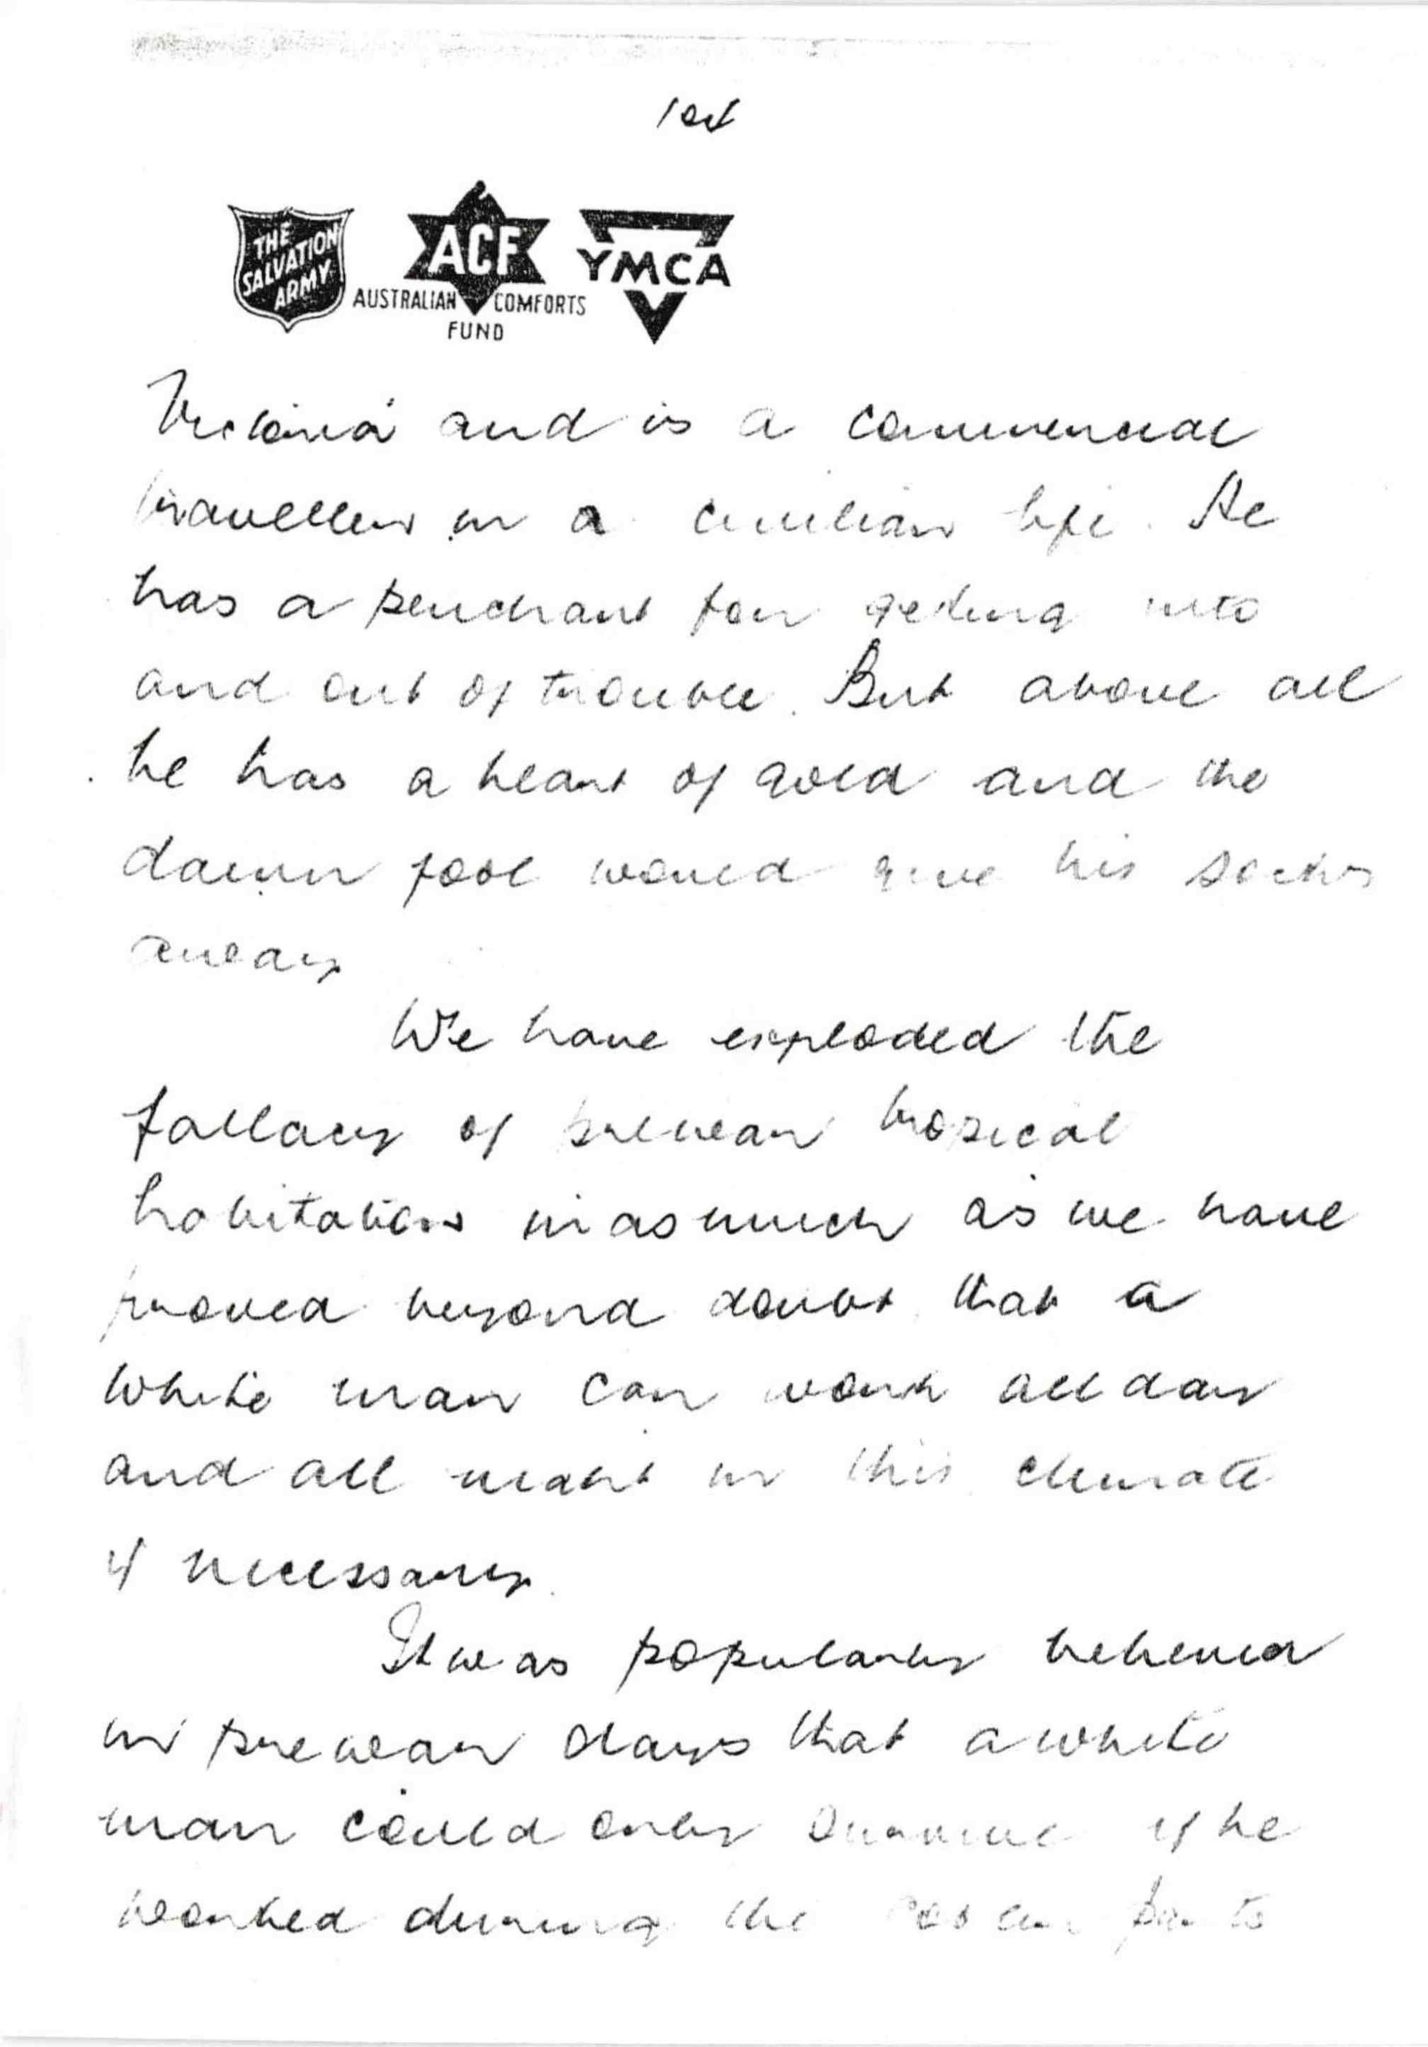 THE
SALVATION
ARMY
ACF
AUSTRALIAN COMFORTS
FUND
YMCA
Victoria and is a commercial
traveller in a civilian life. He
has a penchant for getting into
and out of trouble. But above all
he has a heart of gold and the
damn fool would give his socks
away
We have exploded the
fallacy of prewar tropical
habitation inasmuch as we have
proved beyond doubt that a
white man can work all day
and all night in this climate
if necessary.
It was popularly believed
in prewar days that a white
man could only survive if he
worked during the cooler parts